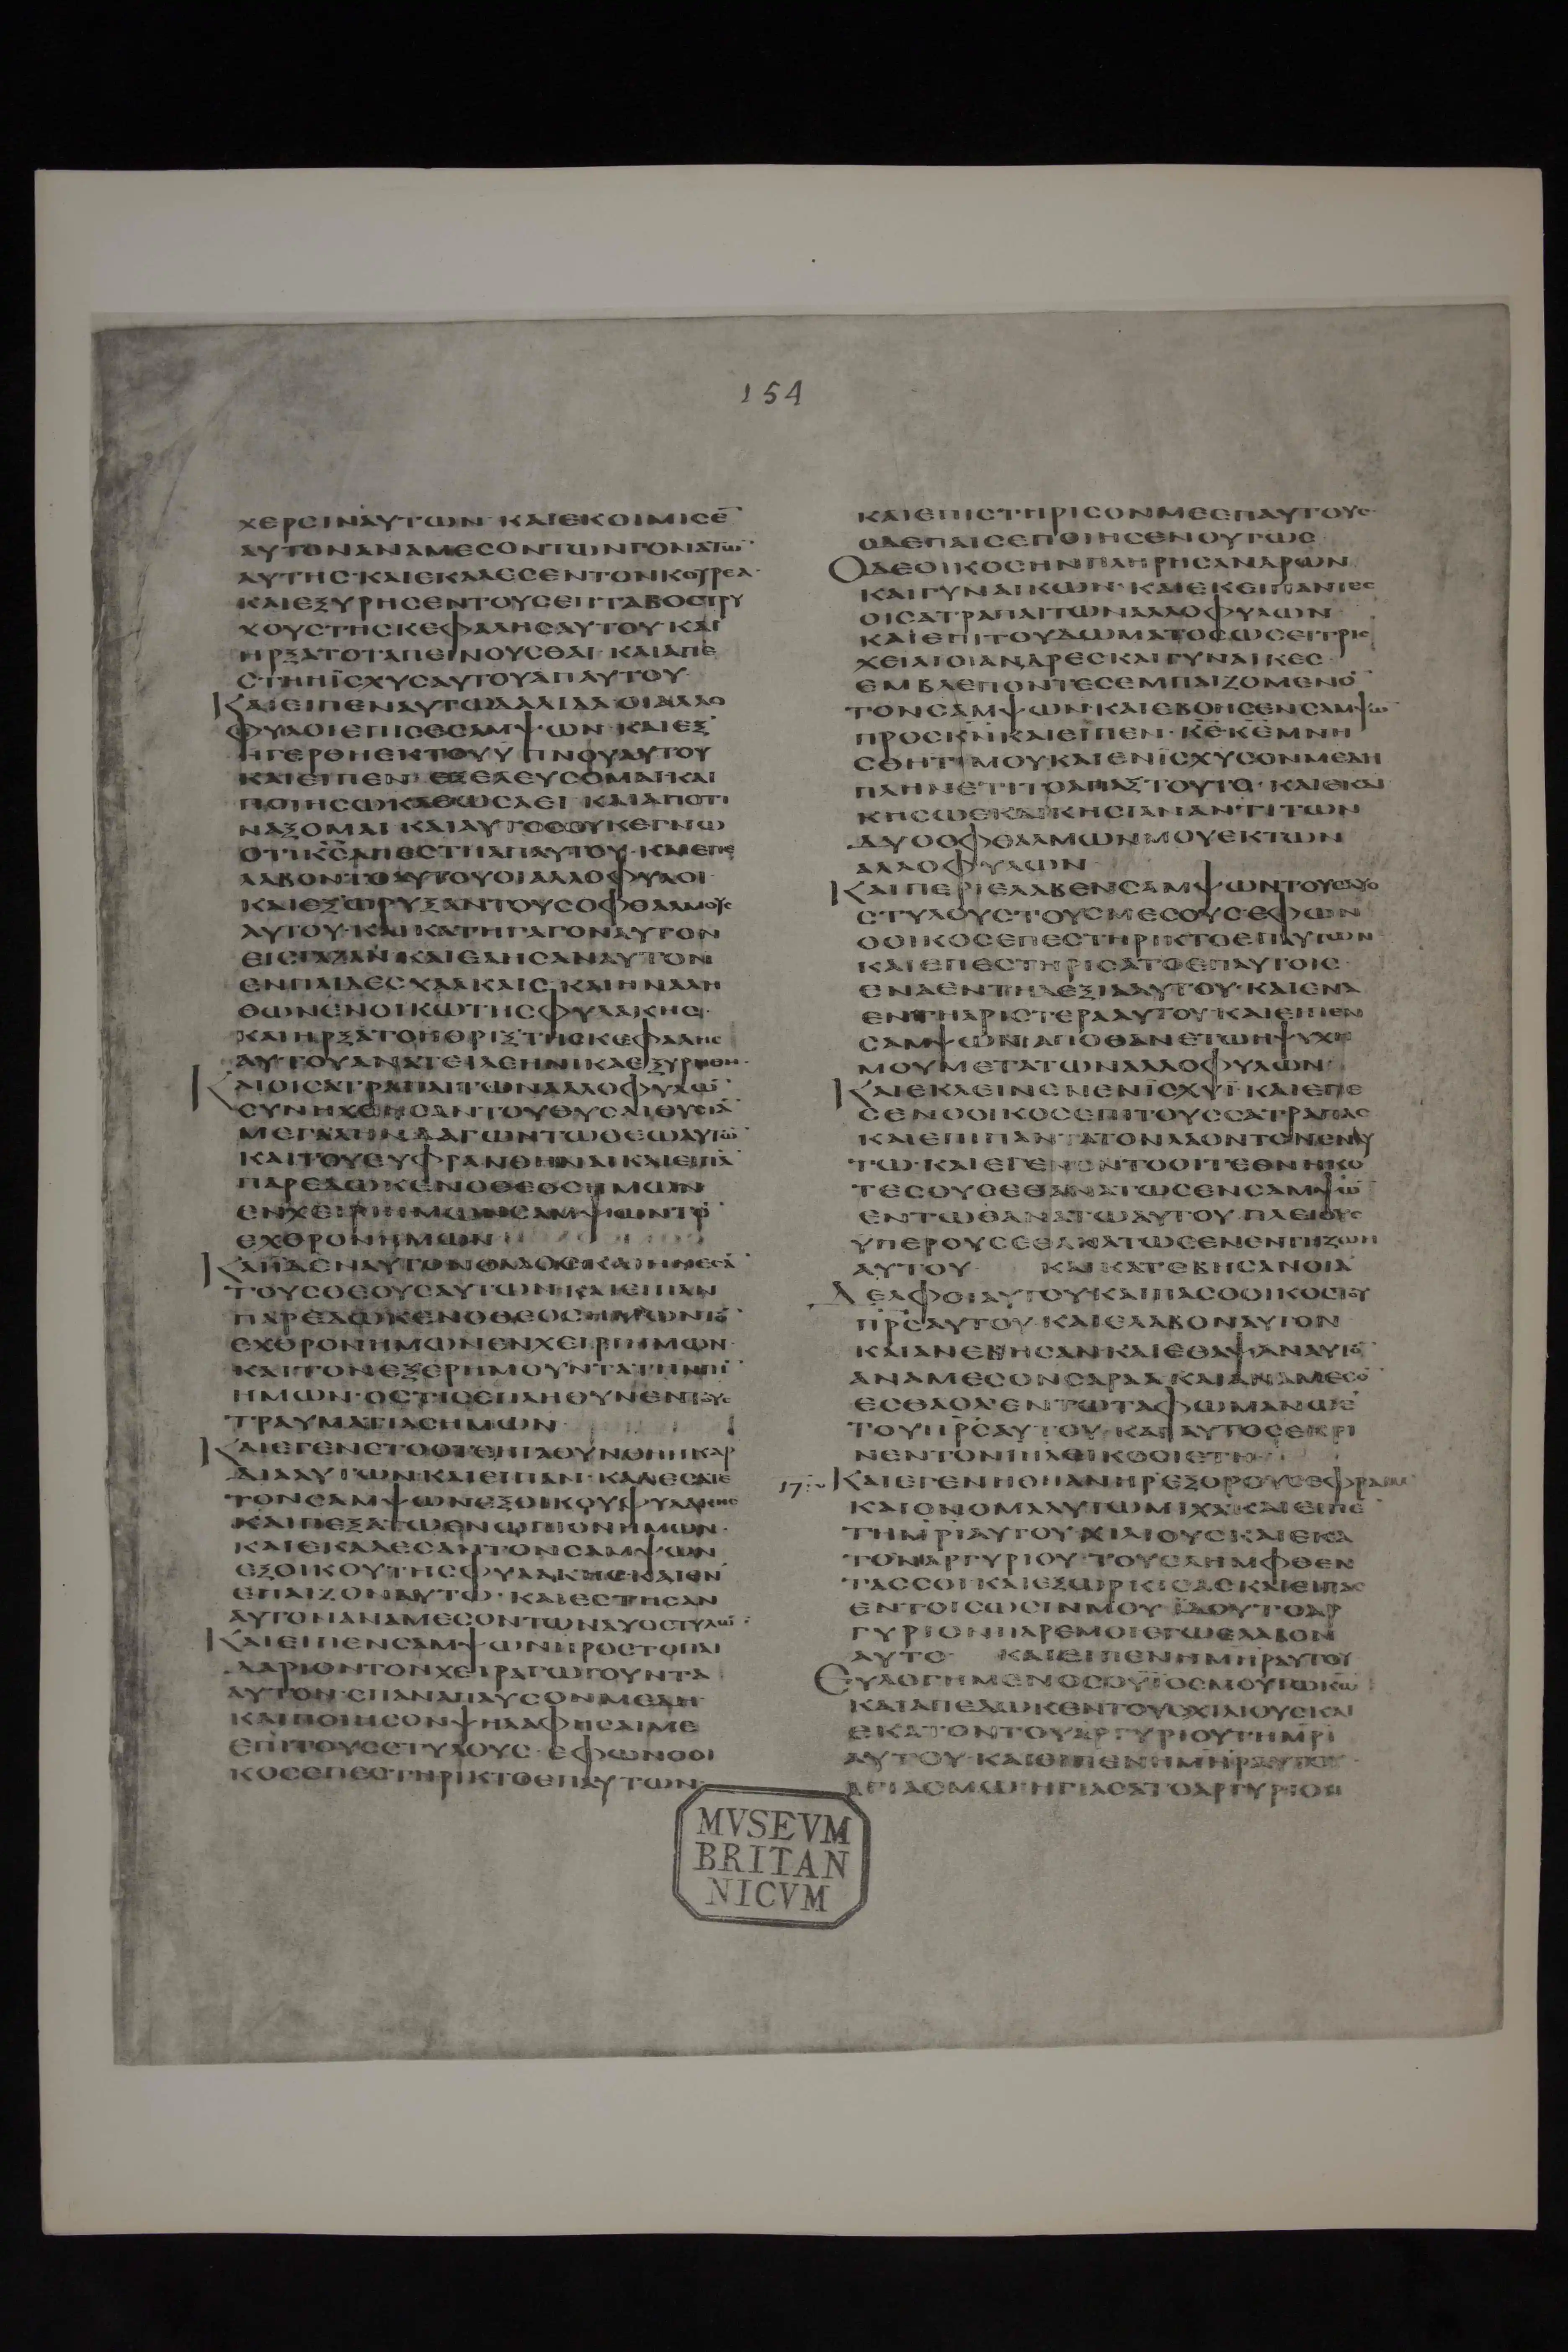 154
ΧΕΡϹΙΝΑΥΤΩΝ· ΚΑΙΕΚΟΙΜΙϹΕ̄
ΑΥΤΟΝΑΝΑΜΕϹΟΝΤΩΝΓΟΝΑΤΩ̄
ΑΥΤΗϹ· ΚΑΙΕΚΑΛΕϹΕΝΤΟΝΚΟΥΡΕΑ·
ΚΑΙΕΞΥΡΗϹΕΝΤΟΥϹΕΠΤΑΒΟϹΤΡΥ
ΧΟΥϹΤΗϹΚΕΦΑΛΗϹΑΥΤΟΥ ΚΑΙ
ΗΡΞΑΤΟΤΑΠΕΙΝΟΥϹΘΑΙ· ΚΑΙΑΠΕ
ϹΤΗΗΪϹΧΥϹΑΥΤΟΥΑΠΑΥΤΟΥ·
ΚΑΙΕΙΠΕΝΑΥΤΩΔΑΛΙΔΑ·ΟΙΑΛΛΟ
ΦΥΛΟΙΕΠΙϹΕϹΑΜΨΩΝ· ΚΑΙΕΞ
ΗΓΕΡΘΗΕΚΤΟΥΥΠΝΟΥΑΥΤΟΥ
ΚΑΙΕΙΠΕΝ ΕΞΕΛΕΥϹΟΜΑΙΚΑΙ
ΠΟΙΗϹΩΚΑΘΩϹΑΕΙ ΚΑΙΑΠΟΤΙ
ΝΑΞΟΜΑΙ ΚΑΙΑΥΤΟϹΟΥΚΕΓΝΩ
ΟΤΙΚ̄Ϲ̄ΑΠΕϹΤΗΑΠΑΥΤΟΥ· ΚΑΙΕΠΕ
ΛΑΒΟΝΤΟΑΥΤΟΥΟΙΑΛΛΟΦΥΛΟΙ·
ΚΑΙΕΞΩΡΥΞΑΝΤΟΥϹΟΦΘΑΛΜΟΥϹ
ΑΥΤΟΥ·ΚΑΙΚΑΤΗΓΑΓΟΝΑΥΤΟΝ
ΕΙϹΓΑΖΑΝ·ΚΑΙΕΔΗϹΑΝΑΥΤΟΝ
ΕΝΠΑΙΔΕϹΧΑΛΚΑΙϹ·ΚΑΙΗΝΑΛΗ
ΘΩΝΕΝΟΙΚΩΤΗϹΦΥΛΑΚΗϹ·
ΚΑΙΗΡΞΑΤΟΗΘΡΙΞΤΗϹΚΕΦΑΛΗϹ
ΑΥΤΟΥΑΝΑΤΕΙΛΕΗΝΙΚΑΕΞΥΡΗΘΗ·
ΚΑΙΟΙϹΑΤΡΑΠΑΙΤΩΝΑΛΛΟΦΥΛΩ̄
ϹΥΝΗΧΘΗϹΑΝΤΟΥΘΥϹΑΙΘΥϹΙᾹ
ΜΕΓΑΛΗΝΔΑΓΩΝΤΩΘΕΩΑΥΤΩ̄
ΚΑΙΤΟΥΕΥΦΡΑΝΘΗΝΑΙΚΑΙΕΙΠᾹ
ΠΑΡΕΔΩΚΕΝΟΘΕΟϹΗΜΩΝ
ΕΝΧΕΙΡΙΗΜΩΝϹΑΜΨΩΝΤΟ̄
ΕΧΘΡΟΝΗΜΩΝ
ΚΑΙΪΔΕΝΑΥΤΟΝΟΛΑΟϹ·ΚΑΙΗΝΕϹᾹ
ΤΟΥϹΘΕΟΥϹΑΥΤΩΝ·ΚΑΙΕΙΠΑΝ
ΠΑΡΕΔΩΚΕΝΟΘΕΟϹΗΜΩΝΤΟ̄
ΕΧΘΡΟΝΗΜΩΝΕΝΧΕΙΡΙΗΜΩΝ·
ΚΑΙΤΟΝΕΞΕΡΗΜΟΥΝΤΑΤΗΝΓΗ̄
ΗΜΩΝ·ΟϹΤΙϹΕΠΛΗΘΥΝΕΝΤΟΥϹ
ΤΡΑΥΜΑΤΙΑϹΗΜΩΝ·
ΚΑΙΕΓΕΝΕΤΟΟΤΕΗΓΑΘΥΝΘΗΗΚΑΡ
ΔΙΑΑΥΤΩΝ·ΚΑΙΕΙΠΑΝ·ΚΑΛΕϹΑΤΕ
ΤΟΝϹΑΜΨΩΝΕΞΟΙΚΟΥΦΥΛΑΚΗϹ
ΚΑΙΠΕΞΑΤΩΕΝΩΠΙΟΝΗΜΩΝ·
ΚΑΙΕΚΑΛΕϹΑΝΤΟΝϹΑΜΨΩΝ
ΕΞΟΙΚΟΥΤΗϹΦΥΛΑΚΗϹ·ΚΑΙΕΝ
ΕΠΑΙΖΟΝΑΥΤΩ· ΚΑΙΕϹΤΗϹΑΝ
ΑΥΤΟΝΑΝΑΜΕϹΟΝΤΩΝΔΥΟϹΤΥΛΩ̄:
ΚΑΙΕΙΠΕΝϹΑΜΨΩΝΠΡΟϹΤΟΠΑΙ
ΔΑΡΙΟΝΤΟΝΧΕΙΡΑΓΩΓΟΥΝΤΑ
ΑΥΤΟΝ·ΕΠΑΝΑΠΑΥϹΟΝΜΕΔΗ·
ΚΑΙΠΟΙΗϹΟΝΨΗΛΑΦΗϹΑΙΜΕ
ΕΠΙΤΟΥϹϹΤΥΛΟΥϹ·ΕΦΩΝΟΟΙ
ΚΟϹΕΠΕϹΤΗΡΙΚΤΟΕΠΑΥΤΩΝ·
ΚΑΙΕΠΙϹΤΗΡΙϹΟΝΜΕΕΠΑΥΤΟΥϹ·
ΟΔΕΠΑΙϹΕΠΟΙΗϹΕΝΟΥΤΩϹ
ΟΔΕΟΙΚΟϹΗΝΠΛΗΡΗϹΑΝΔΡΩΝ
ΚΑΙΓΥΝΑΙΚΩΝ· ΚΑΙΕΚΕΙΠΑΝΤΕϹ
ΟΙϹΑΤΡΑΠΑΙΤΩΝΑΛΛΟΦΥΛΩΝ·
ΚΑΙΕΠΙΤΟΥΔΩΜΑΤΟϹΩϹΕΙΤΡΙϹ
ΧΕΙΛΙΟΙΑΝΔΡΕϹΚΑΙΓΥΝΑΙΚΕϹ·
ΕΜΒΛΕΠΟΝΤΕϹΕΜΠΑΙΖΟΜΕΝΟ̄
ΤΟΝϹΑΜΨΩΝ·ΚΑΙΕΒΟΗϹΕΝϹΑΜΨΩ̄
ΠΡΟϹΚ̄Ν̄ΚΑΙΕΪΠΕΝ·Κ̄Ε̄Κ̄Ε̄ΜΝΗ
ϹΘΗΤΙΜΟΥΚΑΙΕΝΪϹΧΥϹΟΝΜΕΔΗ
ΠΛΗΝΕΤΙΤΟΑΠΑΞΤΟΥΤΟ· ΚΑΙΕΚΔΙ
ΚΗϹΩΕΚΔΙΚΗϹΙΑΝΑΝΤΙΤΩΝ
ΔΥΟΟΦΘΑΛΜΩΝΜΟΥΕΚΤΩΝ
ΑΛΛΟΦΥΛΩΝ
ΚΑΙΠΕΡΙΕΛΑΒΕΝϹΑΜΨΩΝΤΟΥϹΔΥΟ
ϹΤΥΛΟΥϹΤΟΥϹΜΕϹΟΥϹ·ΕΦΩΝ
ΟΟΙΚΟϹΕΠΕϹΤΗΡΙΚΤΟΕΠΑΥΤΩΝ
ΚΑΙΕΠΕϹΤΗΡΙϹΑΤΟΕΠΑΥΤΟΙϹ·
ΕΝΑΕΝΤΗΔΕΞΙΑΑΥΤΟΥ·ΚΑΙΕΝΑ
ΕΝΤΗΑΡΙϹΤΕΡΑΑΥΤΟΥ·ΚΑΙΕΙΠΕΝ
ϹΑΜΨΩΝΑΠΟΘΑΝΕΤΩΗΨΥΧΗ
ΜΟΥΜΕΤΑΤΩΝΑΛΛΟΦΥΛΩΝ·
ΚΑΙΕΚΛΕΙΝΕΝΕΝΪϹΧΥΪ·ΚΑΙΕΠΕ
ϹΕΝΟΟΙΚΟϹΕΠΙΤΟΥϹϹΑΤΡΑΠΑϹ
ΚΑΙΕΠΙΠΑΝΤΑΤΟΝΛΑΟΝΤΟΝΕΝΑΥ
ΤΩ·ΚΑΙΕΓΕΝΟΝΤΟΟΙΤΕΘΝΗΚΟ
ΤΕϹΟΥϹΕΘΑΝΑΤΩϹΕΝϹΑΜΨΩ̄
ΕΝΤΩΘΑΝΑΤΩΑΥΤΟΥ·ΠΛΕΙΟΥϹ
ΥΠΕΡΟΥϹΕΘΑΝΑΤΩϹΕΝΕΝΤΗΖΩΗ
ΑΥΤΟΥ ΚΑΙΚΑΤΕΒΗϹΑΝΟΙΑ
ΔΕΛΦΟΙΑΥΤΟΥΚΑΙΠΑϹΟΟΙΚΟϹΤΟΥ
Π̄Ρ̄Ϲ̄ΑΥΤΟΥ·ΚΑΙΕΛΑΒΟΝΑΥΤΟΝ
ΚΑΙΑΝΕΒΗϹΑΝ·ΚΑΙΕΘΑΨΑΝΑΥΤΟ̄
ΑΝΑΜΕϹΟΝϹΑΡΑΑΚΑΙΑΝΑΜΕϹΟ̄
ΕϹΘΑΟΛΕΝΤΩΤΑΦΩΜΑΝΩΕ
ΤΟΥΠ̄Ρ̄Ϲ̄ΑΥΤΟΥ·ΚΑΙΑΥΤΟϹΕΚΡΙ
ΝΕΝΤΟΝΙΗ̄Λ̄ΕΙΚΟϹΙΕΤΗ·
17 ΚΑΙΕΓΕΝΗΘΗΑΝΗΡΕΞΟΡΟΥϹΕΦΡΑΙΜ
ΚΑΙΟΝΟΜΑΑΥΤΩΜΙΧΑ·ΚΑΙΕΙΠΕ̄
ΤΗΜ̄Ρ̄ῙΑΥΤΟΥ·ΧΙΛΙΟΥϹΚΑΙΕΚΑ
ΤΟΝΑΡΓΥΡΙΟΥ·ΤΟΥϹΛΗΜΦΘΕΝ
ΤΑϹϹΟΙ·ΚΑΙΕΞΩΡΚΙϹΑϹΚΑΙΕΙΠΑϹ
ΕΝΤΟΙϹΩϹΙΝΜΟΥ·ΪΔΟΥΤΟΑΡ
ΓΥΡΙΟΝΠΑΡΕΜΟΙΕΓΩΕΛΑΒΟΝ
ΑΥΤΟ· ΚΑΙΕΙΠΕΝΗΜ̄Η̄Ρ̄ΑΥΤΟΥ
ΕΥΛΟΓΗΜΕΝΟϹΟΥΪΟϹΜΟΥΤΩΚ̄Ω̄
ΚΑΙΑΠΕΔΩΚΕΝΤΟΥϹΧΙΛΙΟΥϹΚΑΙ
ΕΚΑΤΟΝΤΟΥΑΡΓΥΡΙΟΥΤΗΜ̄Ρ̄Ῑ
ΑΥΤΟΥ·ΚΑΙΕΙΠΕΝΗΜ̄Η̄Ρ̄ΑΥΤΟΥ·
ΑΓΙΑϹΜΩΗΓΙΑϹΑΤΟΑΡΓΥΡΙΟΝ
MVSEVM
BRITAN
NICVM